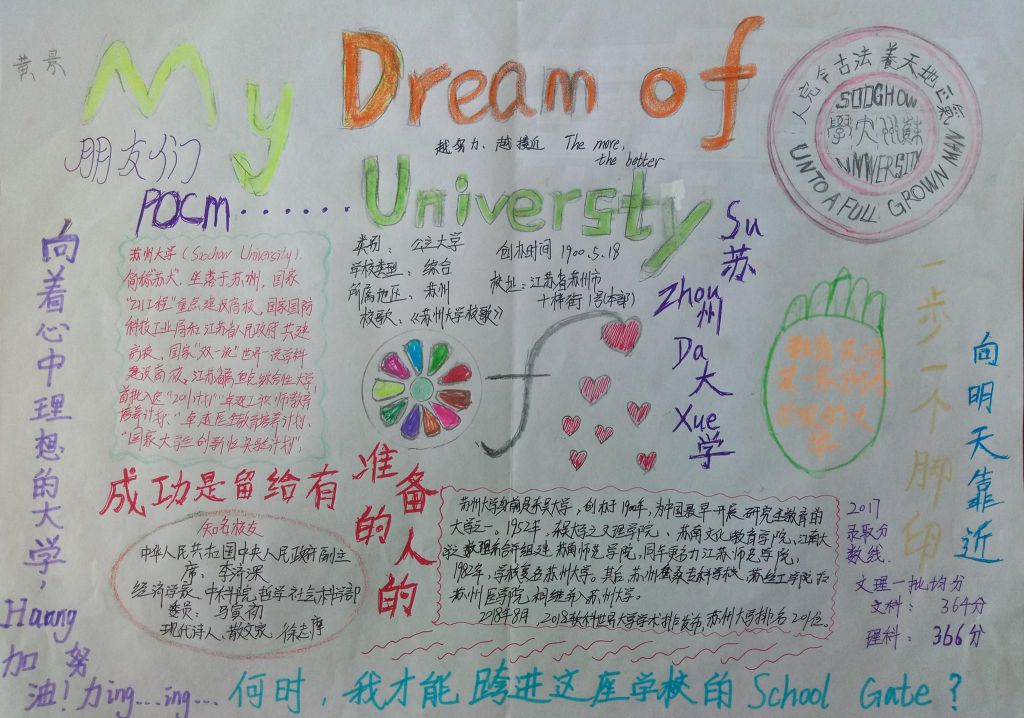 黄景
My Dream of
University
朋友们
POCM......
越努力、越接近 The more,
the better
人完今古法養天地正氣
SOOCHOW
UNIVERSITY
UNTO A FULL GROWN MAN
苏州大学(Soochow University)
简称苏大, 坐落于苏州, 国家
"211工程"重点建设高校, 国家国防
科技工业局和江苏省人民政府共建
高校, 国家"双一流"世界一流学科
建设高校, 江苏省属重点综合性大学,
首批入选"2011计划"
"国家大学生创新性实验计划",
类别: 公立大学 创办时间 1900.5.18
学校类型: 综合
校址: 江苏省苏州市
所属地区: 苏州
十梓街1号(本部)
校歌:《苏州大学校歌》
Su
苏
Zhou
州
Da
大
Xue
学
向着心中理想的大学,
一步一个脚印
向明天靠近
成功是留给有准备的人的
知名校友
中华人民共和国中央人民政府副主
席: 李济深
经济学家、中科院哲学社会科学部
委员: 马寅初
现代诗人、散文家: 徐志摩
苏州大学身前是东吴大学, 创办于1900年, 为中国最早开展研究生教育的
大学之一。1952年, 东吴大学之文理学院、苏南文化教育学院、江南大
学之数理系合并组建苏南师范学院, 同年更名为江苏师范学院,
1982年, 学校复名苏州大学。其后, 苏州蚕桑专科学校、苏丝工学院和
苏州医学院相继并入苏州大学。
2017
录取分
数线.
文理一批均分
文科: 364分
理科: 366分
Huang
加 努
油! 力ing...ing...
何时, 我才能跨进这座学校的 School Gate?